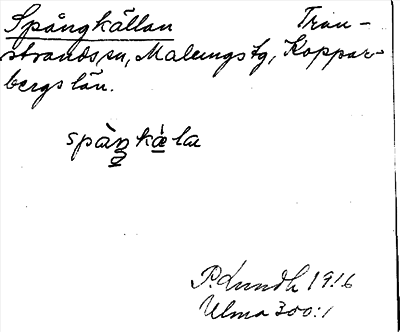 Spångkällan Tran-
strands sn, Malungs tg, Koppar-
bergs län.
spàŋkæ̀la
P. Lundh 1916
Ulma 300:1